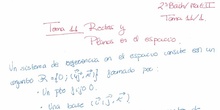 2º Bach/ Mat II
Tema 11/1
Tema 11 Rectas y
Planos en el espacio
Un sistema de referencia en el espacio consiste en un
conjunto R = {0; (i, j, k)} formado por:
• Un pto fijo 0.
• Una base (i, j, k)